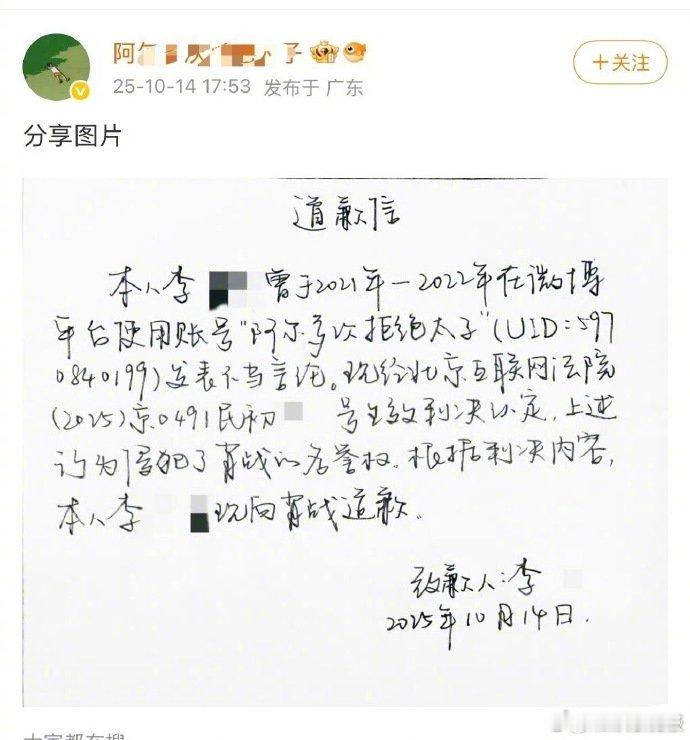 阿 子
25-10-14 17:53 发布于 广东
+关注
分享图片
道歉信
本人李 曾于2021年-2022年在微博
平台使用账号“阿尔多次拒绝太子”(UID:597
0840199)发表不当言论。现经北京互联网法院
(2025)京0491民初 号生效判决认定,上述
行为侵犯了肖战的名誉权。根据判决内容,
本人李 现向肖战道歉。
致歉人:李
2025年10月14日.
大家都在搜